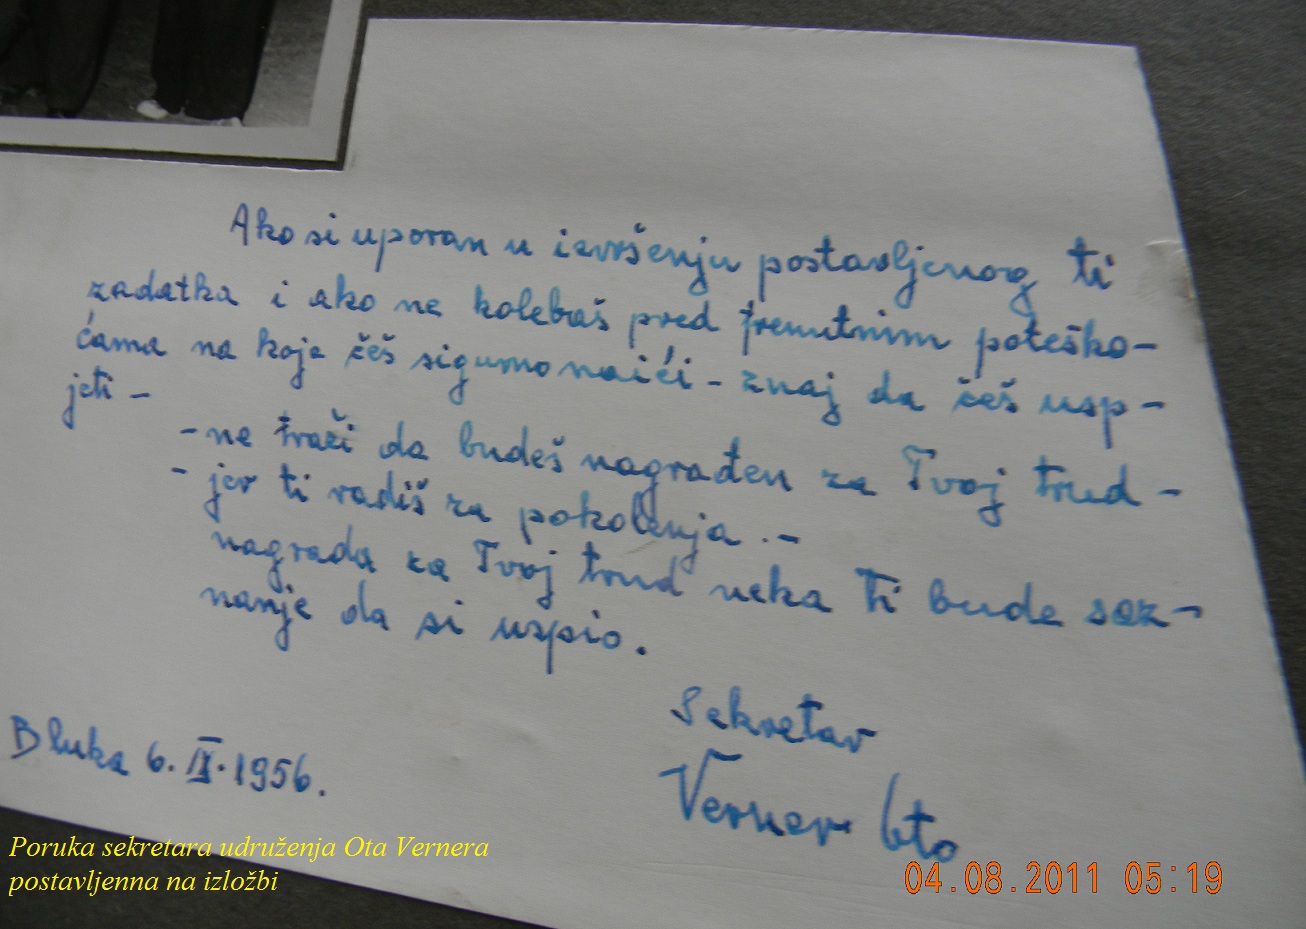 Ako si uporan u izvršenju postavljenog ti
zadatka i ako ne kolebaš pred trenutnim poteško-
ćama na koje ćeš sigurno naići - znaj da ćeš usp-
jeti -
- ne traži da budeš nagrađen za Tvoj trud -
- jer ti radiš za pokolenja . -
nagrada za Tvoj trud neka ti bude saz-
nanje da si uspio.
Sekretar
Verner Oto
B luka 6. IX. 1956.
Poruka sekretara udruženja Ota Vernera
postavljenna na izložbi
04.08.2011 05:19